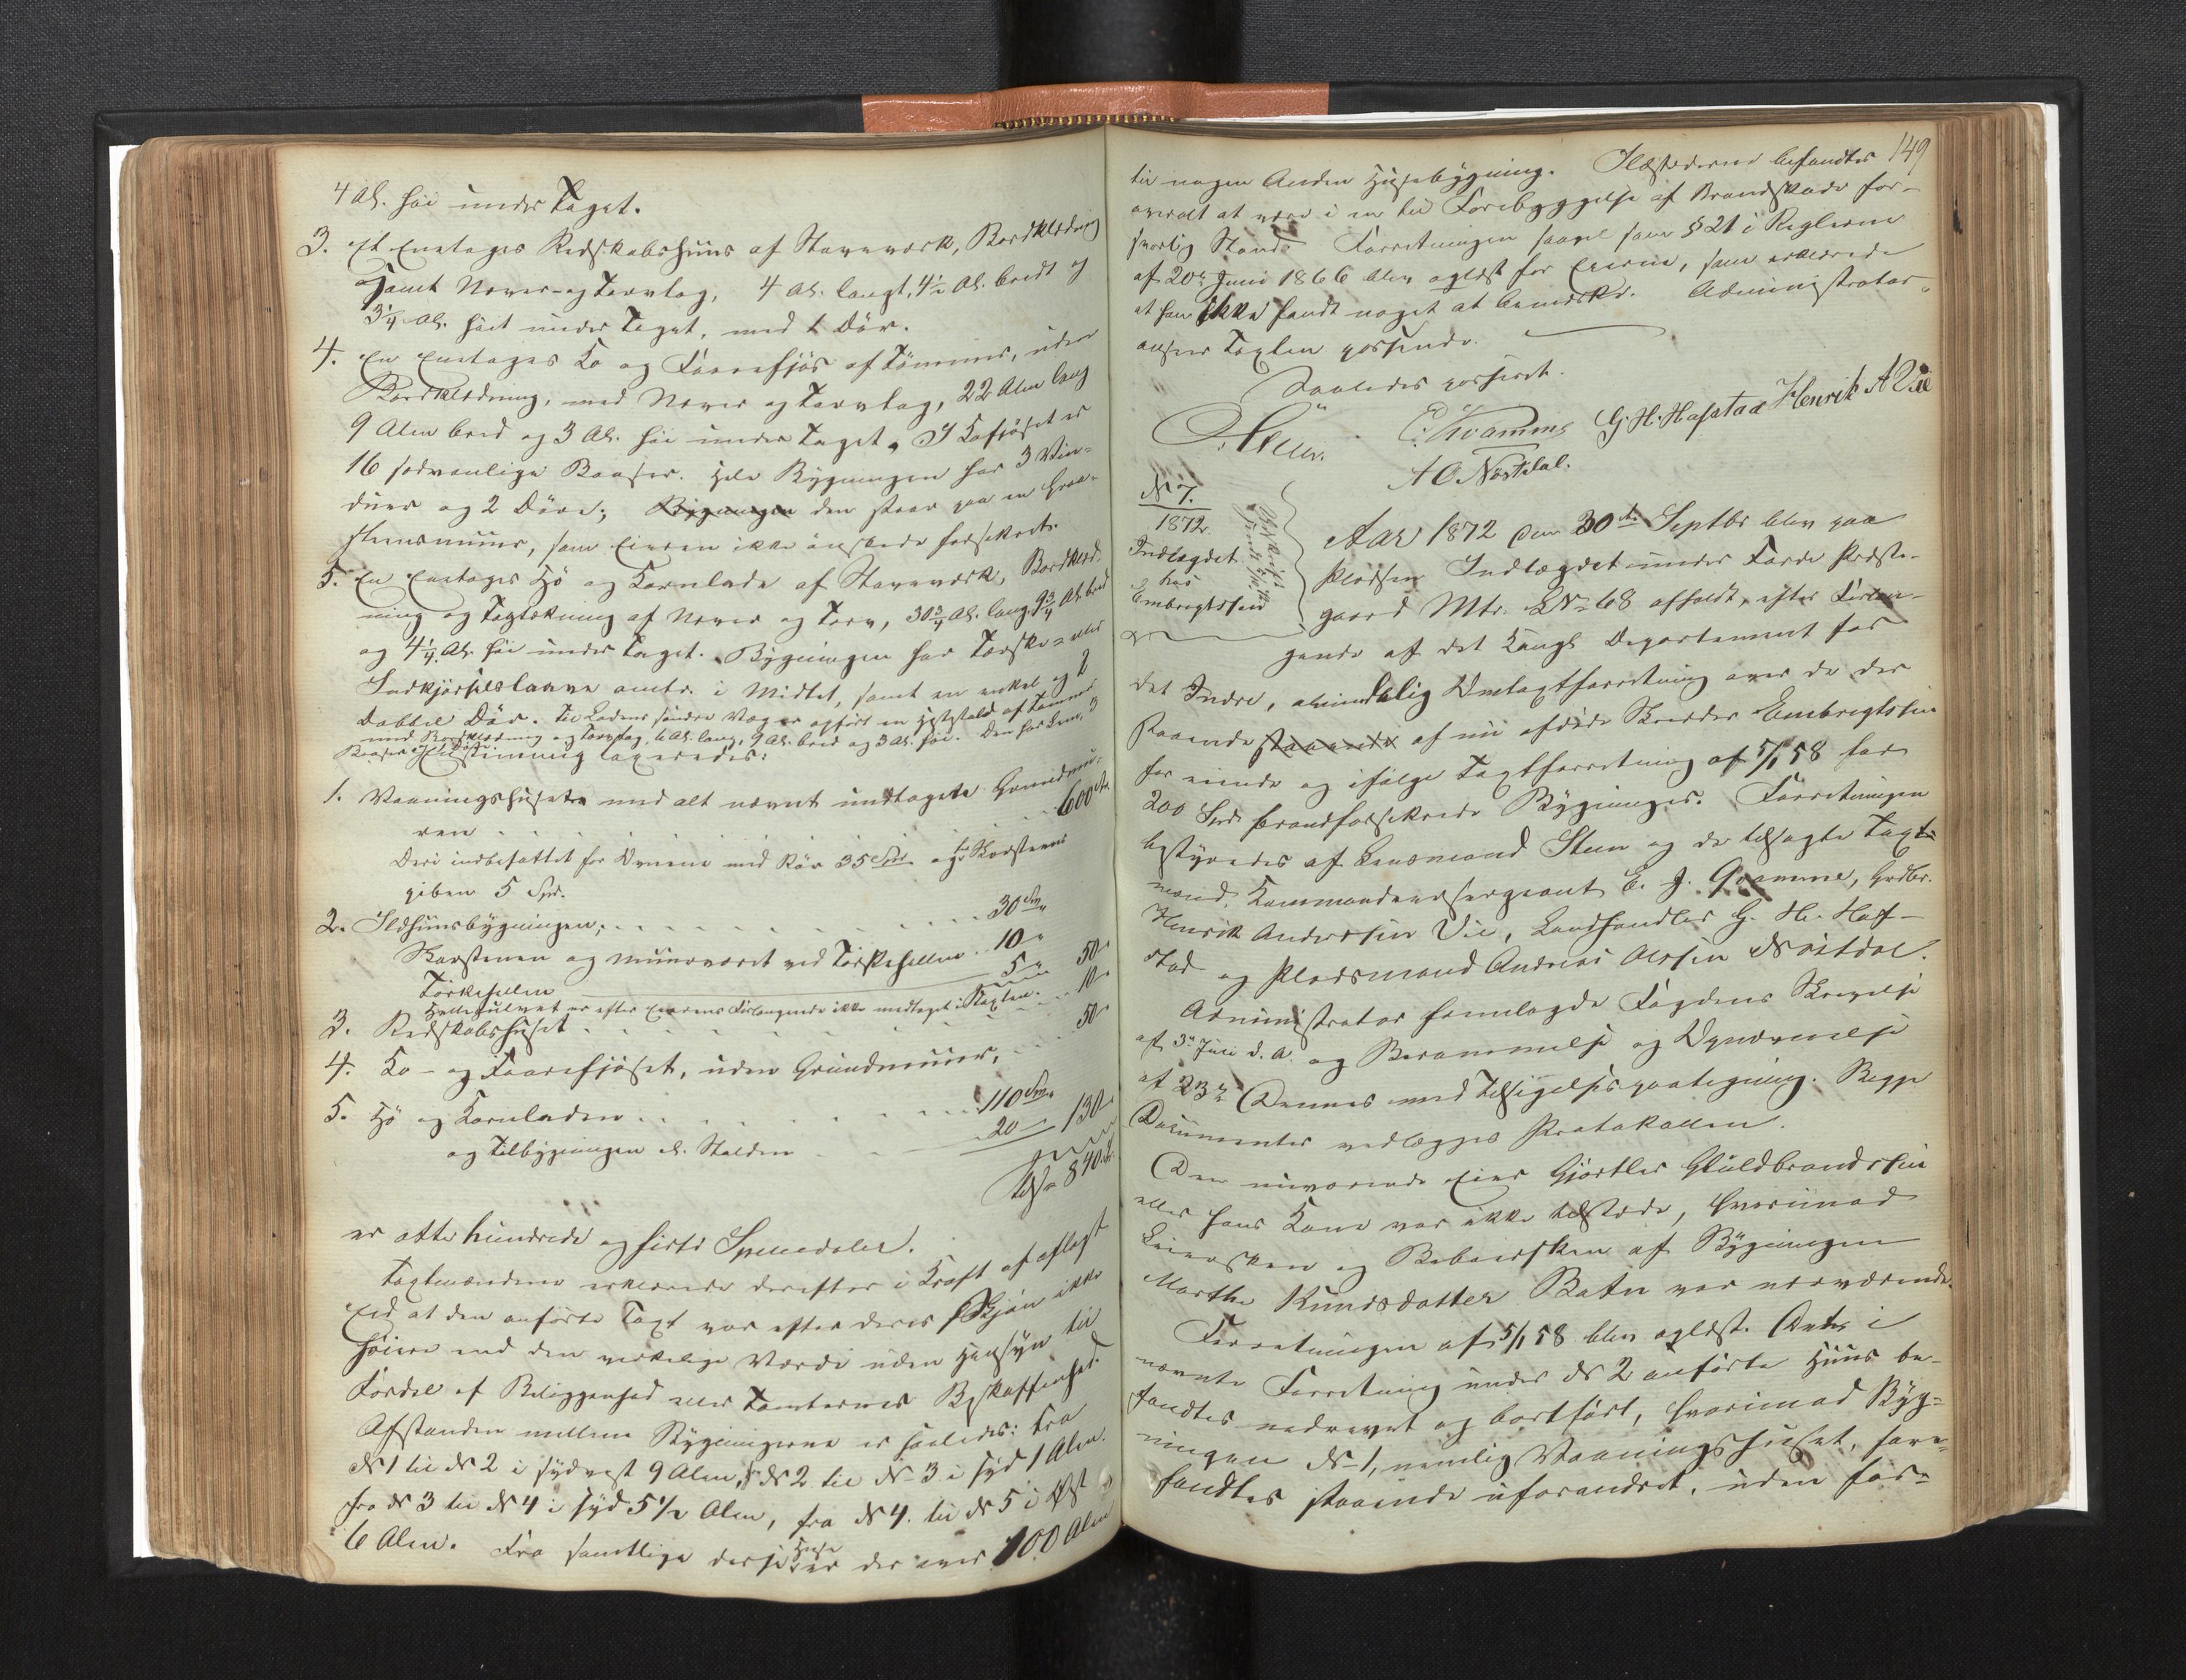 4 Al. höi under Taget.
3. Et Eenetages Redskabshuus af Stavværk, Bordklædning
samt Never- og Torvtag, 4 Al. langt, 4½ Al. bredt og
3¼ Al. höit under Taget, med 1 Dör.
4. En Eenetages Ko og Faarefjös af Tömmer, uden
Bordklædning, med Never og Torvtag, 22 Alen lang
9 Alen bred og 3 Al. höi under Taget. I Kofjöset er
16 sædvanlige Baaser. Hele Bygningen har 3 Vin-
duer og 2 Döre; Bygningen den staar paa en Graa-
steensmuur, som Eieren ikke önskede forsikret.
5. En Eenetages Hö og Kornlade af Stavværk, Bordklæd-
ning og Tagtækning af Never og Torv, 30¾ Al. lang, 9¾ Al. bred
og 4¼ Al. höi under Taget. Bygningen har Tærske- eller
Indkjörselslaave omtr. i Midtet, samt en enkel og 2
Dobbel Dör. Til Ladens söndre Væg er opfört en Hestestald af Tömmer
med Bordklædning og Torvtag, 6 Al. lang, 9 Al. bred og 3 Al. höi. Den har Lem, 3
Baaser og 1 Dör.
1. Vaaningshuset med alt nævnt undtagen Grundmu-
ren . . . . 600 Spd.
Deri indbefattet for Ovnene med Rör 35 Spd og for Skorsteens
piben 5 Spd.
2. Ildhuusbygningen, . . . . 30 Spd.
Skorstenen og Muurværket ved Törkehellen . 10 "
Törkehellen 5 " 50 "
Hellegulvet er efter Eierens Forlangende ikke medtaget i Taxten.
3. Redskabshuset . . . . 10 "
4. Ko- og Faarefjöset, uden Grundmuur, . . . 50 "
5. Hö og Kornladen . . . . 110 Spd.
og Tilbygningen d. Stalden . . 20 " 130 "
Tils. 840 Spd.
er otte hundrede og firti Speciedaler.
Taxtmændene erklærede derefter i Kraft af aflagt
Eed at den anförte Taxt var efter deres Skjön ikke
höiere end den virkelige Værdi uden Hensyn til
Fordel af Beliggenhed eller Tomternes Beskaffenhed.
Afstanden mellem Bygningerne er saaledes: Fra
№ 1 til № 2 i sydvest 9 Alen, fr № 2 til № 3 i syd 1 Alen.
fra № 3 til № 4 i syd 5½ Alen, fra № 4. til № 5 i Öst
6 Alen. Fra samtlige disse Huse er der over 100 Alen
149
til nogen Anden Huusebygning. Ildstederne befandtes
overalt at være i en til Forebyggelse af Brandskade for-
svarlig Stand. Forretningen saavel som § 21 i Reglerne
af 20de Juni 1866 blev oplæst for Eieren, som erklærede
at han ikke fandt noget at bemærke. Administrator
ansaaer Taxten passende.
Saaledes passeret.
Steen. E. Kvamme G. H. Hafstad Henrik A Vie
A O Nöstdal.
№ 7.
1872.
Indlægdet
hos
Embregtssen
Aar 1872 den 30te Septbr blev paa
Pladsen Indlægdet under Förde Præste-
gaard Mtr. L№ 68 afholdt, efter Forlan-
gende af det Kongl. Departement for
det Indre, almindelig Omtaxtforretning over de der
staaende staaende af nu afdöde Skrædder Embregtssen
for eiende og ifölge Taxtforretning af 5/1 58 for
200 Spd. brandforsikrede Bygninger. Forretningen
bestyredes af Lensmand Steen og de tilsagte Taxt-
mænd. Kommandeersergeant E. J. Qvamme, Grdbr.
Henrik Anderssen Vie, Landhandler G. H. Haf-
stad og Pladsmand Andreas Olssen Nöstdal.
Administrator fremlagde Fogdens Skrivelse
af 3de Juni d. A. og Berammelse og Opnævnelse
af 23de Dennes med Tilsigelsespaategning. Begge
Documenter vedlægges Protokollen.
Den nuværende Eier Gjörtler Guldbrandssen
eller hans Kone var ikke tilstede, hvorimod
Leiersken og Beboersken af Bygningen
Marthe Knudsdatter Batn var nærværende.
Forretningen af 5/1 58 blev oplæst. Det i
nævnte Forretning under № 2 anförte Huus be-
fandtes nedrevet og bortfört, hvorimod Byg-
ningen № 1, nemlig Vaaningshuset, fore-
fandtes staaende uforandret, uden for-